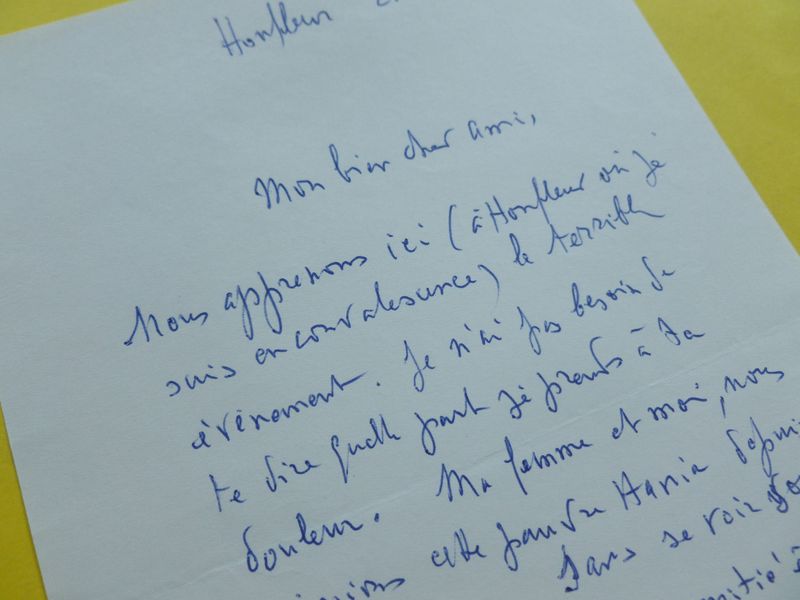 Honfleur
Mon bien cher ami,
Nous apprenons ici (à Honfleur où je
suis en convalescence) le terrible
évènement. Je n'ai pas besoin de
te dire quelle part je prends à ta
douleur. Ma femme et moi, nous
cette pauvre Hania depuis
Sans se voir